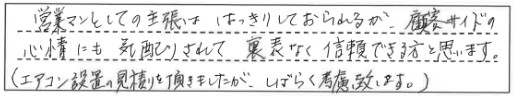 営業マンとしての主張は はっきりしておられるが、顧客サイドの
心情にも 気配りされて 裏表なく 信頼できる方と思います。
(エアコン設置の見積りを頂きましたが、しばらく考慮致します。)